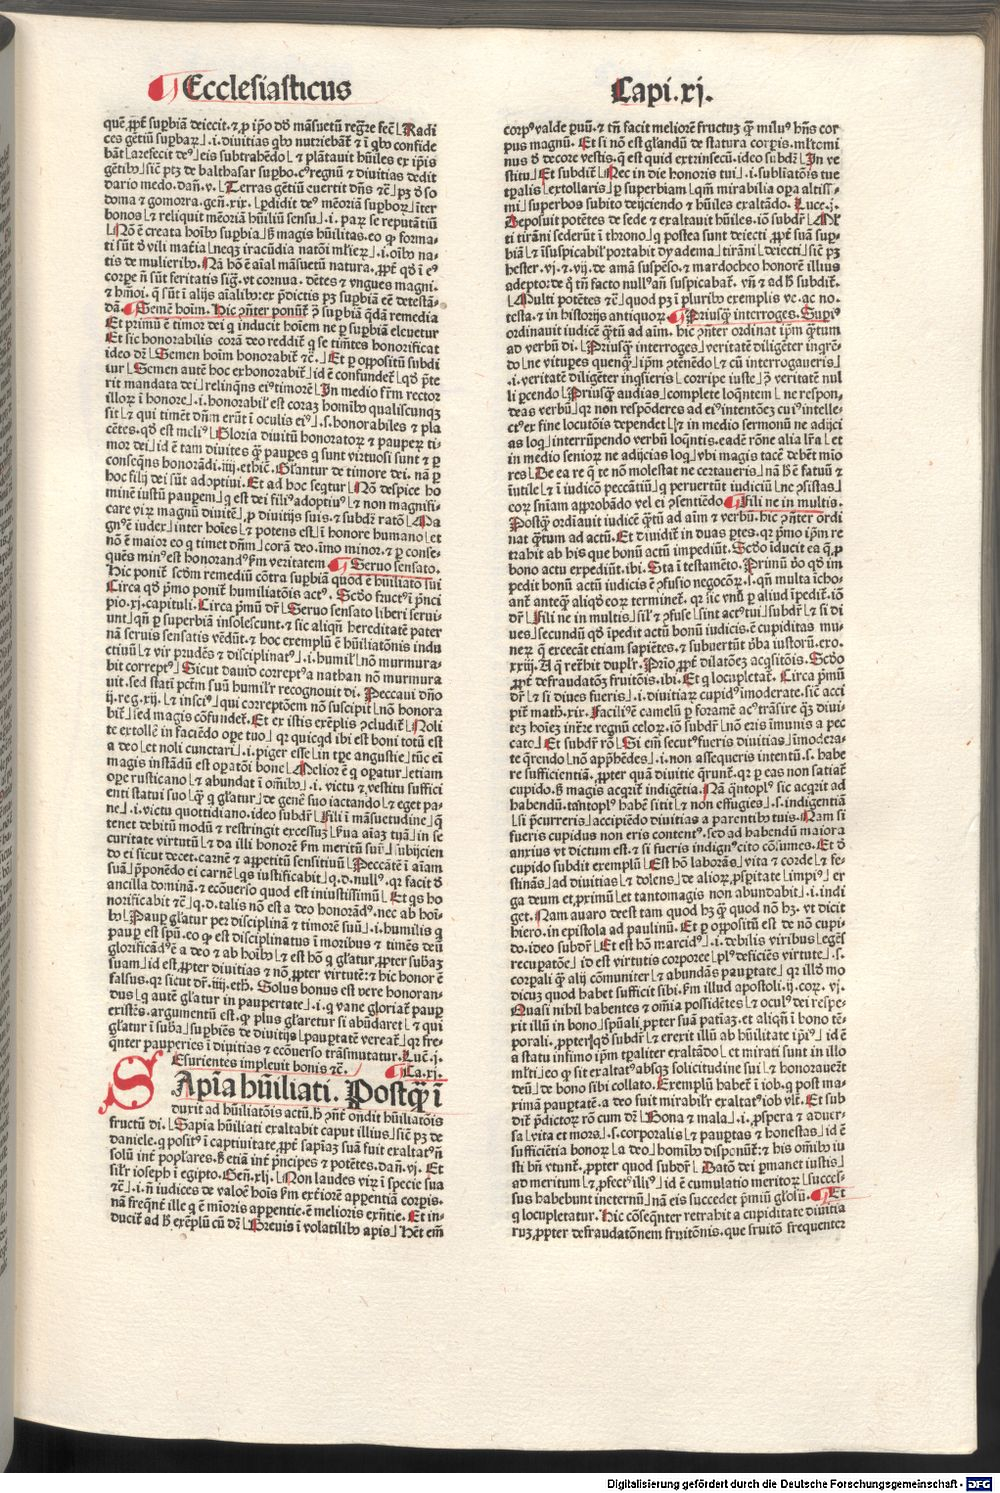 Ecclesiasticus
quē ꝓpt̄ suꝑbiā deiecit. ⁊ ꝓ ip̄o dō māsuetū reg̃re fec̄ Radi
ces gētiū suꝑbaꝝ .i. diuitias qͥbꝰ nutriebāt̄ ⁊ ī qͥbꝰ confide
bāt arefecit deꝰ eis subtrahēdo ⁊ plātauit hūiles ex ip̄is
gētibꝰ sic̄ ptꝫ de balthasar suꝑbo. cꝰ regnū ⁊ diuitias dedit
dario medo. dañ. v. Terras gētiū euertit dn̄s ⁊c̄ pꝫ ō so
doma ⁊ gomorra. gen̄. xix. ꝑdidit deꝰ mēoriā suꝑboꝝ iter
bonos ⁊ reliquit mēoriā hūiliū sensu .i. paꝝ se reputātiū
Nō ē creata hoībꝰ suꝑbia ẜ magis hūilitas. eo ꝙ forma-
ti sūt ō vili mat̄ia neqꝫ iracūdia natōi ml̄ieꝝ .i. oībꝰ na-
tis de mulieribꝰ. Nā hō ē aīal māsuetū natura. ꝓpt̄ qd̄ ī eꝰ
corꝑe n̄ sūt feritatis sig̃. vt cornua. dētes ⁊ vngues magni.
⁊ hmōi. q̄ sūt ī alijs aīalibꝰ: ex p̄dictis pꝫ suꝑbiā eē detestā-
dā. Semē hoīm. Hic ꝯn̄ter ponūt̄ ꝯ̄ suꝑbiā q̄dā remedia
Et primū ē timor dei q̄ inducit hoīem ne ꝑ suꝑbiā eleuetur
Et sic honorabilis corā deo reddit̄ q̄ se timētes honorificat
ideo dr̄ Semen hoīm honorabit̄ ⁊c̄. Et ꝑ oppositū subdi
tur Semen autē hoc exhonorabit̄ id ē confundet̄ qd̄ p̄te
rit mandata dei relinq̄ns eiꝰ timorē In medio fr̄m rector
illoꝝ ī honore .i. honorabil̓ est coraꝫ homībꝰ qualiscunqꝫ
sit ⁊ qui timēt dn̄m erūt ī oculis eiꝰ .s. honorabiles ⁊ pla
cētes. qd̄ est meliꝰ Gloria diuitū honoratoꝝ ⁊ pauꝑꝝ ti-
mor dei id ē tam diuites q̄ pauꝑes q̄ sunt virtuosi sunt ⁊ ꝑ
conseq̄ns honorādi. iiij. ethic̄. Gl̄antur de timore dei. nā ꝑ
hoc filij dei sūt adoptiui. Et ad hoc seqtur Nō despice ho
minē iustū pauꝑem q̄ est dei filiꝰ adoptiuꝰ ⁊ non magnifi-
care viꝝ magnū diuitē ꝓ diuitijs suis. ⁊ subdr̄ ratō Ma
gnꝰ ē iudex inter hoīes ⁊ potens est ī honore humano et
nō ē maior eo q̄ timet dn̄m corā deo. imo minor. ⁊ ꝑ conse-
quēs minꝰ est honorandꝰ ẜm veritatem Seruo sensato.
Hic ponit̄ scd̄m remediū cōtra suꝑbiā quod ē hūiliatō sui
Circa qd̄ p̄mo ponit̄ humiliatōis actꝰ. Scd̄o fructꝰ ī p̄nci
pio. xj. capituli. Circa p̄mū dr̄ Seruo sensato liberi serui-
unt qn̄ ꝑ superbiā insolescunt. ⁊ sic aliqn̄ hereditatē pater
nā seruis sensatis vēdūt. ⁊ hoc exemplū ē hūiliatōnis indu
ctiuū ⁊ vir prudēs ⁊ disciplinatꝰ .i. humil̓ nō murmura-
bit correptꝰ Sicut dauid correptꝰ a nathan nō murmura
uit. sed statī pctm̄ suū humilr̄ recognouit di. Peccaui dn̄o
ij. reg. xij. ⁊ insciꝰ qui correptōem nō suscipit nō honora
bit̄ sed magis cōfundet̄. Et ex istis exēplis ꝯcludit̄ Noli
te extollē in faciēdo oꝑe tuo qꝛ quicqd ibi est boni totū est
a deo et noli cunctari .i. piger esse in tꝑe angustie tūc eī
magis instādū est oꝑatōi bone Melior ē q̄ oꝑatur etiam
oꝑe rusticano ⁊ abundat ī oībꝰ .i. victu ⁊ vestitu suffici
enti statui suo q̄ q̄ gl̄atur de gene suo iactando ⁊ eget pa-
ne .i. victu quottidiano. ideo subdr̄ Fili ī māsuetudine q̄
tenet debitū modū ⁊ restringit excessuꝫ ẜua aīaꝫ tuā in se
curitate virtutū ⁊ da illi honorē ẜm meritū suū subijcien
do ei sicut decet. carnē ⁊ appetitū sensitiuū Peccātē ī aīam
suā ꝓponēdo ei carnē qs iustificabit q.d. nullꝰ. qꝛ facit ō
ancilla dominā. ⁊ ecōuerso quod est iniustissimū Et qs ho
norificabit ⁊c̄ q.d. talis nō est a deo honorādꝰ. nec ab hoī-
bꝰ Pauꝑ gl̄atur per disciplinā ⁊ timorē suū .i. humilis q̄
pauꝑ est spū. eo ꝙ est disciplinatus ī moribus ⁊ timēs deū
glorificādꝰ ē a deo ⁊ ab hoībꝰ ⁊ est hō q̄ gl̄atur. ꝓpter sub̄aꝫ
suam id est. ꝓpter diuitias ⁊ nō ꝓpter virtutē: ⁊ hic honor ē
falsus. qꝛ sicut dr̄. iiij. eth̄. Solus bonus est vere honoran-
dus q̄ autē gl̄atur in paupertate .i. q̄ vane gloriat̄ pauꝑ
existēs. argumentū est. ꝙ plus gl̄aretur si abūdaret ⁊ qui
gl̄atur ī sub̄a suꝑbiēs de diuitijs pauꝑtatē vereat̄ qꝛ fre-
q̄nter pauperies ī diuitias ⁊ ecōuerso trāsmutatur. Luc̄. j.
Esurientes impleuit bonis ⁊c̄. Ca. xj.
SApīa hūiliati. Postq̄ ī
duxit ad hūiliatōis actū. h̄ ꝯn̄t̄ ondit hūiliatōis
fructū di. Sapīa hūiliati exaltabit caput illius sic̄ pꝫ de
daniele. q̄ positꝰ ī captiuitate. ꝓpt̄ sapīaꝫ suā fuit exaltatꝰ n̄
solū int̄ popl̄ares. ẜ etiā int̄ p̄ncipes ⁊ potētes. dañ. vj. Et
sil̄r ioseph ī egipto. Gen̄. xlj. Non laudes viꝝ ī specie sua
⁊c̄ .i. n̄ iudices de valoē hoīs ẜm ext̄iorē apꝑentiā corꝑis.
nā freq̄nt̄ ille q̄ ē mioris apꝑentie. ē melioris exn̄tie. Et in-
ducit̄ ad h̄ exēplū cū dr̄ Breuis ī volatilibꝰ apis Hēt em̄
Capi. xj.
corpꝰ valde ꝑuū. ⁊ tn̄ facit meliorē fructuꝫ q̄ miluꝰ hn̄s cor
pus magnū. Et si nō est gl̄andū de statura corꝑis. ml̄tomi
nus ō decore vestis. q̄ est quid extrinsecū. ideo subdr̄ In ve
stitu Et subdit̄ Nec in die honoris tui .i. sublīatōis tue
tꝑalis extollaris ꝑ superbiam qm̄ mirabilia oꝑa altissi-
mi superbos subito deijciendo ⁊ hūiles exaltādo. Luce. j.
Deposuit potētes de sede ⁊ exaltauit hūiles. iō subdr̄ Ml̄
ti tirāni sederūt ī throno q̄ postea sunt deiecti ꝓpt̄ suā suꝑ
biā ⁊ īsuspicabil̓ portabit dyadema tirāni deiecti sic̄ pꝫ
hester. vj. ⁊ vij. de amā suspēso. ⁊ mardocheo honorē illius
adepto: de q̄ tn̄ facto nullꝰ an̄ suspicabat̄. vn̄ ⁊ ad h̄ subdit̄.
Multi potētes ⁊c̄ quod pꝫ ī pluribꝰ exemplis ve. ac no.
testa. ⁊ in historijs antiquoꝝ. Priusq̄ interroges. Supiꝰ
ordinauit iudicē q̄tū ad aīm. hic ꝯn̄ter ordinat ip̄m q̄tum
ad verbū di. Priusq̄ interroges veritatē diligēter inq̄rē-
do ne vituꝑes quenq̄ ip̄m ꝯtēnēdo ⁊ cū interrogaueris
.i. veritatē diligēter inq̄sieris corripe iuste ꝓ veritatē nul
li ꝑcendo Priusq̄ audias complete loq̄ntem ne respon-
deas verbū qꝛ non respōderes ad eiꝰ intentōeꝫ cui ītelle-
ctꝰ ex fine locutiōis dependet ⁊ in medio sermonū ne adijci
as loq̄ interrūpendo verbū loq̄ntis. eadē rōne alia lr̄a et
in medio senioꝝ ne adijcias loq̄ vbi magis tacē debēt mīo
res De ea re q̄ te nō molestat ne certaueris nā h̄ ē fatuū ⁊
īutile ⁊ ī iudicō peccātiū q̄ peruertūt iudiciū ne ꝯsistas
coꝝ sn̄iam approbādo vel ei ꝯsentiēdo Fili ne in multis.
Postq̄ ordīauit iudicē q̄tū ad aīm ⁊ verbū. hic ꝯn̄ter ordi
nat q̄tum ad actū. Et diuidit̄ in duas ꝑtes. qꝛ p̄mo ip̄m re
trahit ab his que bonū actū impediūt. Scd̄o īducit ea q̄ ꝓ
bono actu expediūt. ibi. Sta ī testamēto. Primū ō qd̄ im
pedit bonū actū iudicis ē ꝯfusio negocōꝝ .s. qn̄ multa īcho-
ant̄ anteq̄ aliqd̄ eoꝝ terminet̄. qꝛ sic vnū ꝑ aliud īpedit̄. iō
dr̄ Fili ne in multis sil̓ ⁊ ꝯfuse sint actꝰ tui subdr̄ ⁊ si di
ues secundū qd̄ īpedit actū bonū iudicis. ē cupiditas mu-
neꝝ q̄ excecāt etiam sapiētes. ⁊ subuertūt ōba iustorū. exo.
xxiij. A q̄ ret̄hit duplr̄. Prio ꝓpt̄ dilatōeꝫ acq̄sitōis. Scd̄o
ꝓpt̄ defraudatōꝫ fruitōis. ibi. Et q̄ locupletat̄. Circa p̄mū
dr̄ ⁊ si diues fueris .i. diuitiaꝝ cupidꝰ imoderate. sic̄ acci
pit̄ math̄. xix. Faciliꝰ ē camelū ꝑ foramē acꝰ trāsire q̄ꝫ diui
teꝫ hoīeꝫ int̄re regnū celoꝝ. iō subdr̄ nō eris īmunis a pec
cato. Et subdr̄ rō Si em̄ secutꝰ fueris diuitias īmodera-
te q̄rendo nō app̄hēdes .i. non assequeris intentū .s. habe
re sufficientiā. ꝓpter quā diuitie q̄runt̄. qꝛ ꝑ eas non satiat̄
cupido. ẜ magis acq̄rit indigētia. Nā q̄ntoplꝰ sic acq̄rit ad
habendū. tātoplꝰ habē sitit ⁊ non effugies .s. indigentiā
si p̄curreris accipiēdo diuitias a parentibꝰ tuis. Nam si
fueris cupidus non eris contentꝰ. sed ad habendū maiora
anxius vt dictum est. ⁊ si fueris indignꝰ cito cōsumes. Et ō
cupido subdit exemplū Est hō laborās vita ⁊ corde ⁊ fe-
stinās ad diuitias ⁊ dolens de alioꝝ. ꝓsꝑitate impiꝰ er
ga deum et. primū et tantomagis non abundabit .i. indi
get. Nam auaro deest tam quod hꝫ q̄ quod nō hꝫ. vt dicit
hiero. in epistola ad paulinū. Et ꝑ oppositū est de nō cupi-
do. ideo subdr̄ Et est hō marcidꝰ .i. debilis viribus egēs
recuꝑatōe id est virtutis corporee plꝰ deficiēs virtute .s.
corꝑali q̄ alij cōmuniter ⁊ abundās pauꝑtate qꝛ illd̄ mo
dicuꝫ quod habet sufficit sibi. ẜm illud apostoli. ij. coꝝ. vj.
Quasi nihil habentes ⁊ oīa possidētes ⁊ oculꝰ dei respe-
xit illū in bono spūali. ꝓpter suā patīaꝫ. et aliqn̄ ī bono tē-
porali. ꝓpter qd̄ subdr̄ ⁊ erexit illū ab hūilitate ip̄iꝰ id ē
a statu infimo ip̄m tꝑaliter exaltādo et mirati sunt in illo
ml̄ti eo ꝙ sit exaltatꝰ absqꝫ solicitudine sui ⁊ honorauēt
deū de bono sibi collato. Exemplū habet̄ ī iob. q̄ post ma-
ximā pauꝑtatē. a deo fuit mirabilr̄ exaltatꝰ iob vlt̄. Et sub
dit̄ p̄dictoꝝ rō cum dr̄ Bona ⁊ mala .i. ꝓspera ⁊ aduer-
sa vita et mors .s. corporalis ⁊ pauꝑtas ⁊ honestas id ē
sufficiētia honoꝝ a deo homībꝰ disponūt̄: ⁊ his oībꝰ iu
sti bn̄ vtunt̄. ꝓpter quod subdr̄ Datō dei ꝑmanet iustis
ad meritum ⁊ ꝓfectꝰ illiꝰ id ē cumulatio meritoꝝ succes-
sus habebunt ineternū nā eis succedet p̄miū gl̄osū. Et
q̄ locupletatur. Hic cōseq̄nter retrahit a cupiditate diuitia
ruꝫ. ꝓpter defraudatōnem fruitōnis. que fruitō frequenter
Digitalisierung gefördert durch die Deutsche Forschungsgemeinschaft - DFG